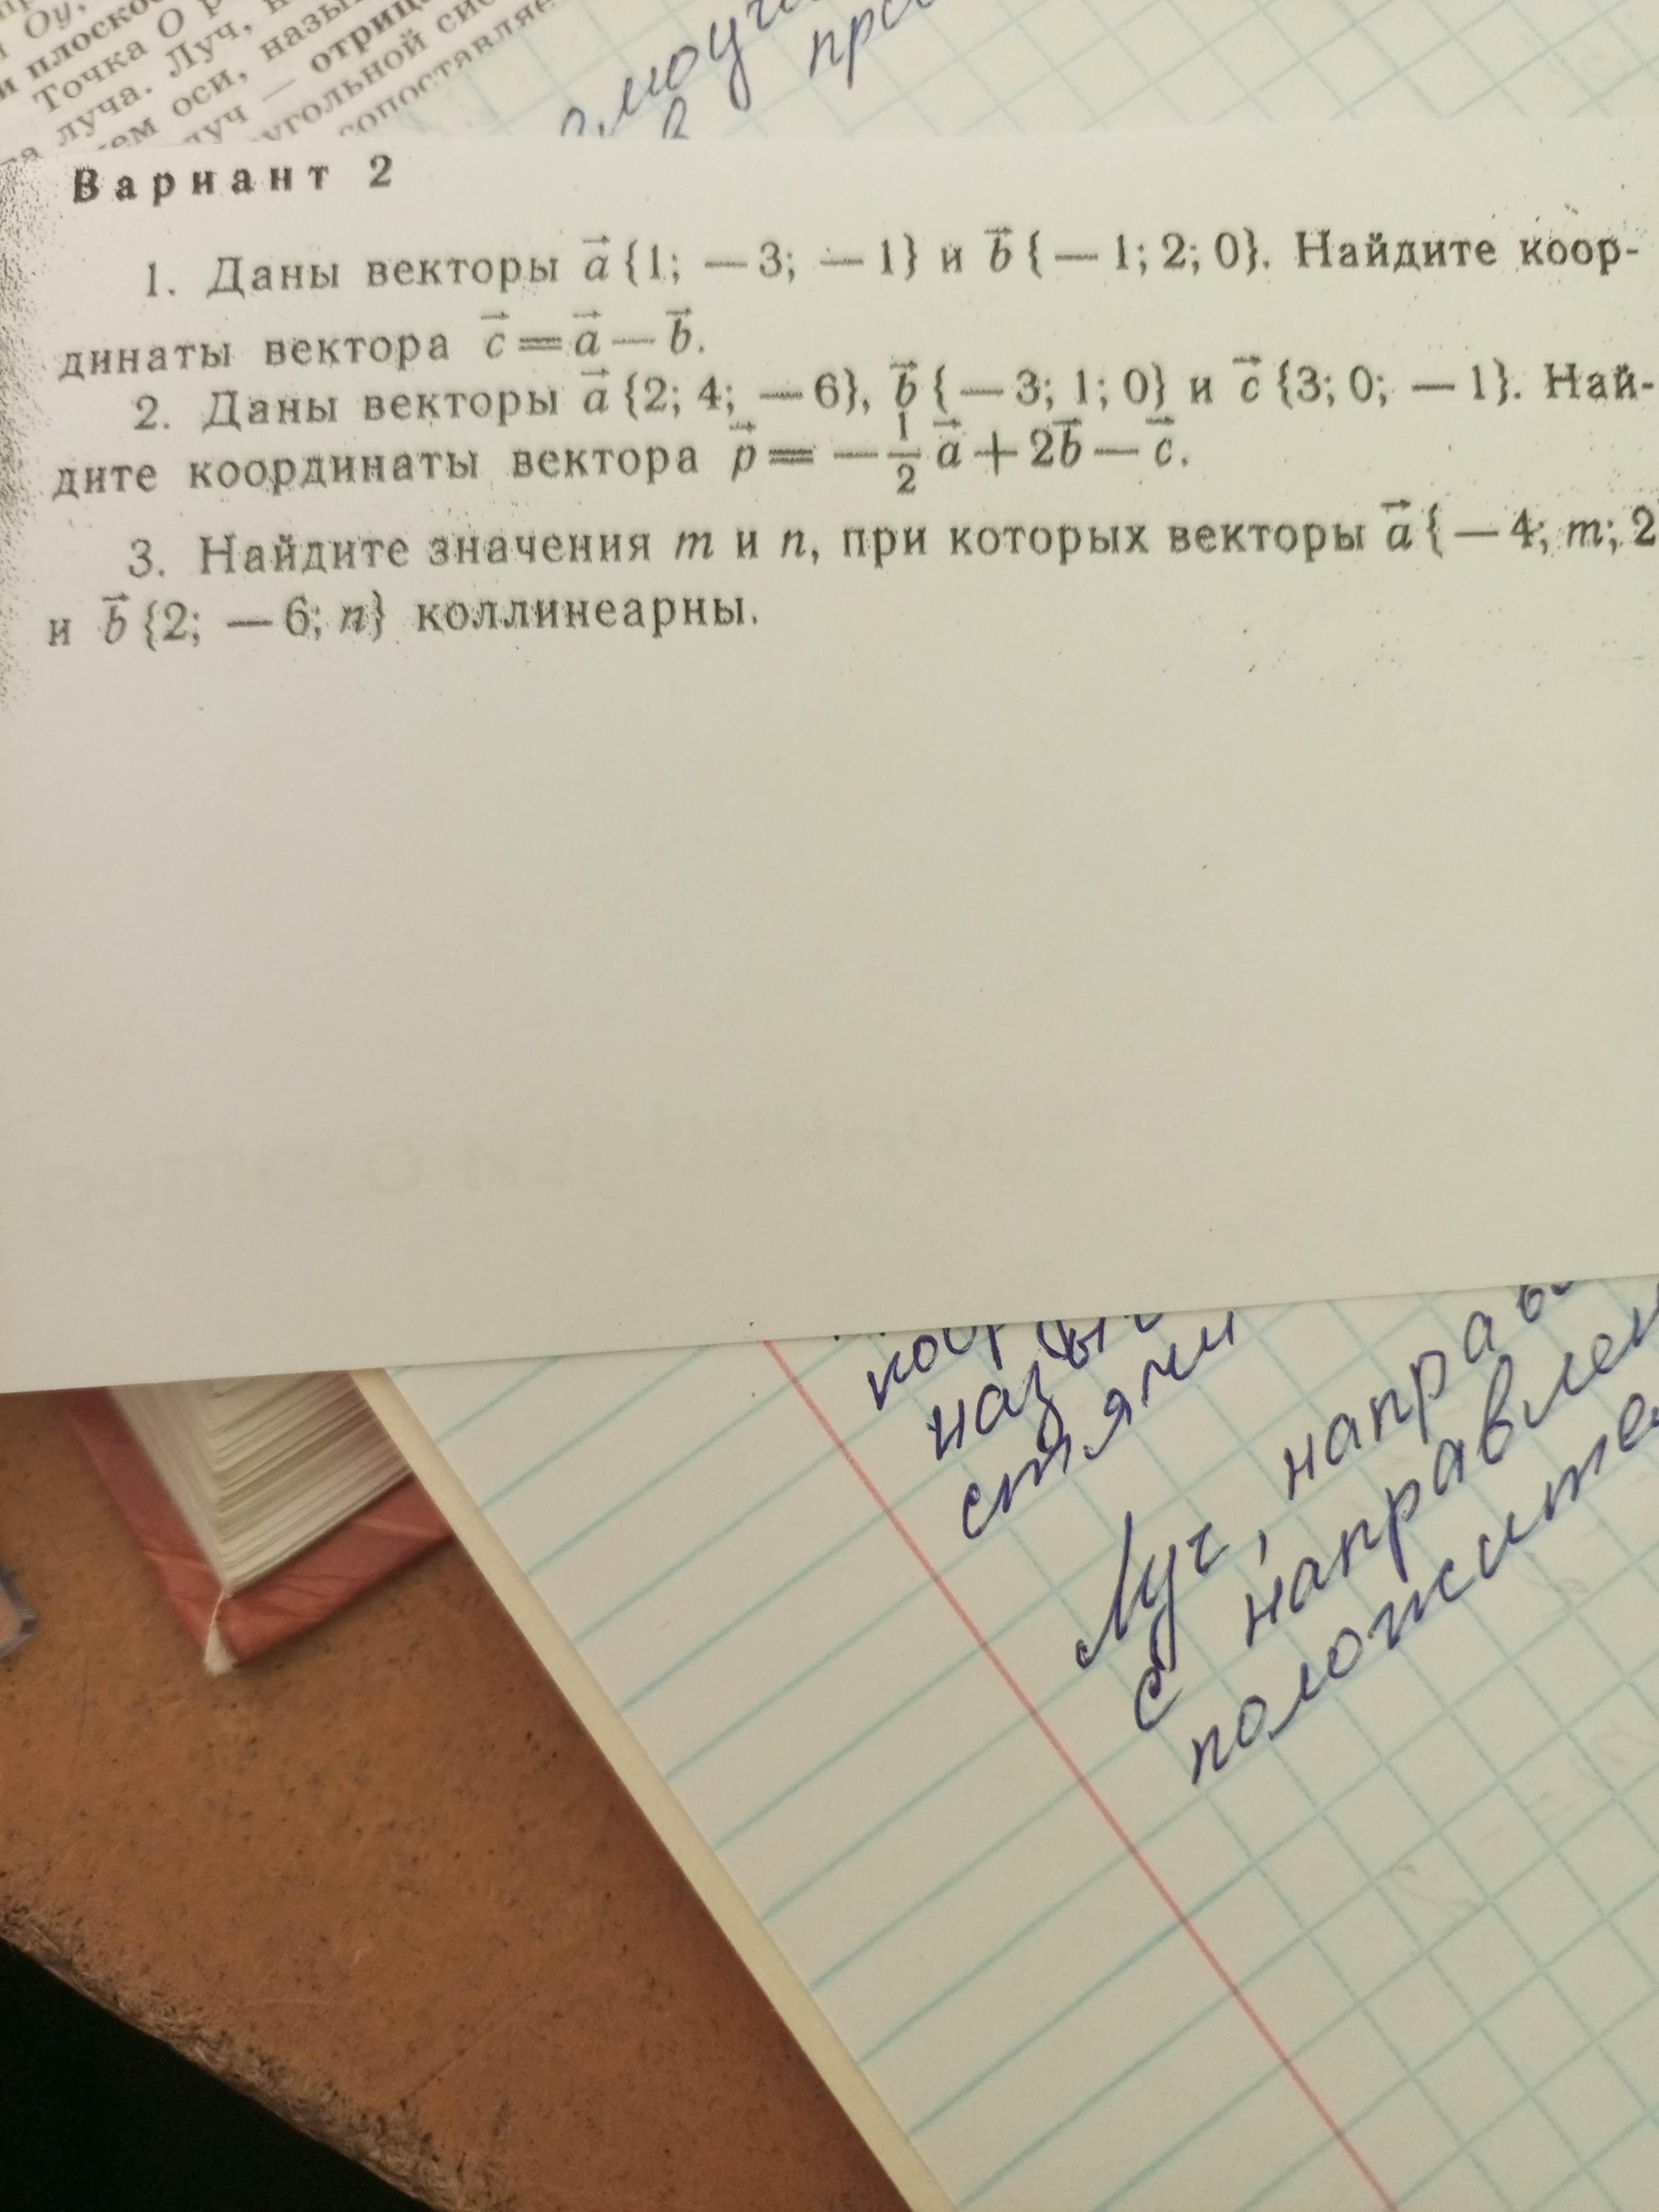 Oy,
и плоско
Точка O
луча. Луч,
ем оси, назы
луч — отриц
угольной сис
сопоставляе
Вариант 2
1. Даны векторы a⃗ {1; — 3; — 1} и b⃗ {— 1; 2; 0}. Найдите коор-
динаты вектора c⃗ = a⃗ — b⃗.
2. Даны векторы a⃗ {2; 4; — 6}, b⃗ {— 3; 1; 0} и c⃗ {3; 0; — 1}. Най-
дите координаты вектора p⃗ = — 1/2 a⃗ + 2b⃗ — c⃗.
3. Найдите значения m и n, при которых векторы a⃗ {— 4; m; 2
и b⃗ {2; — 6; n} коллинеарны.
Луч, напра
с направлен
положите